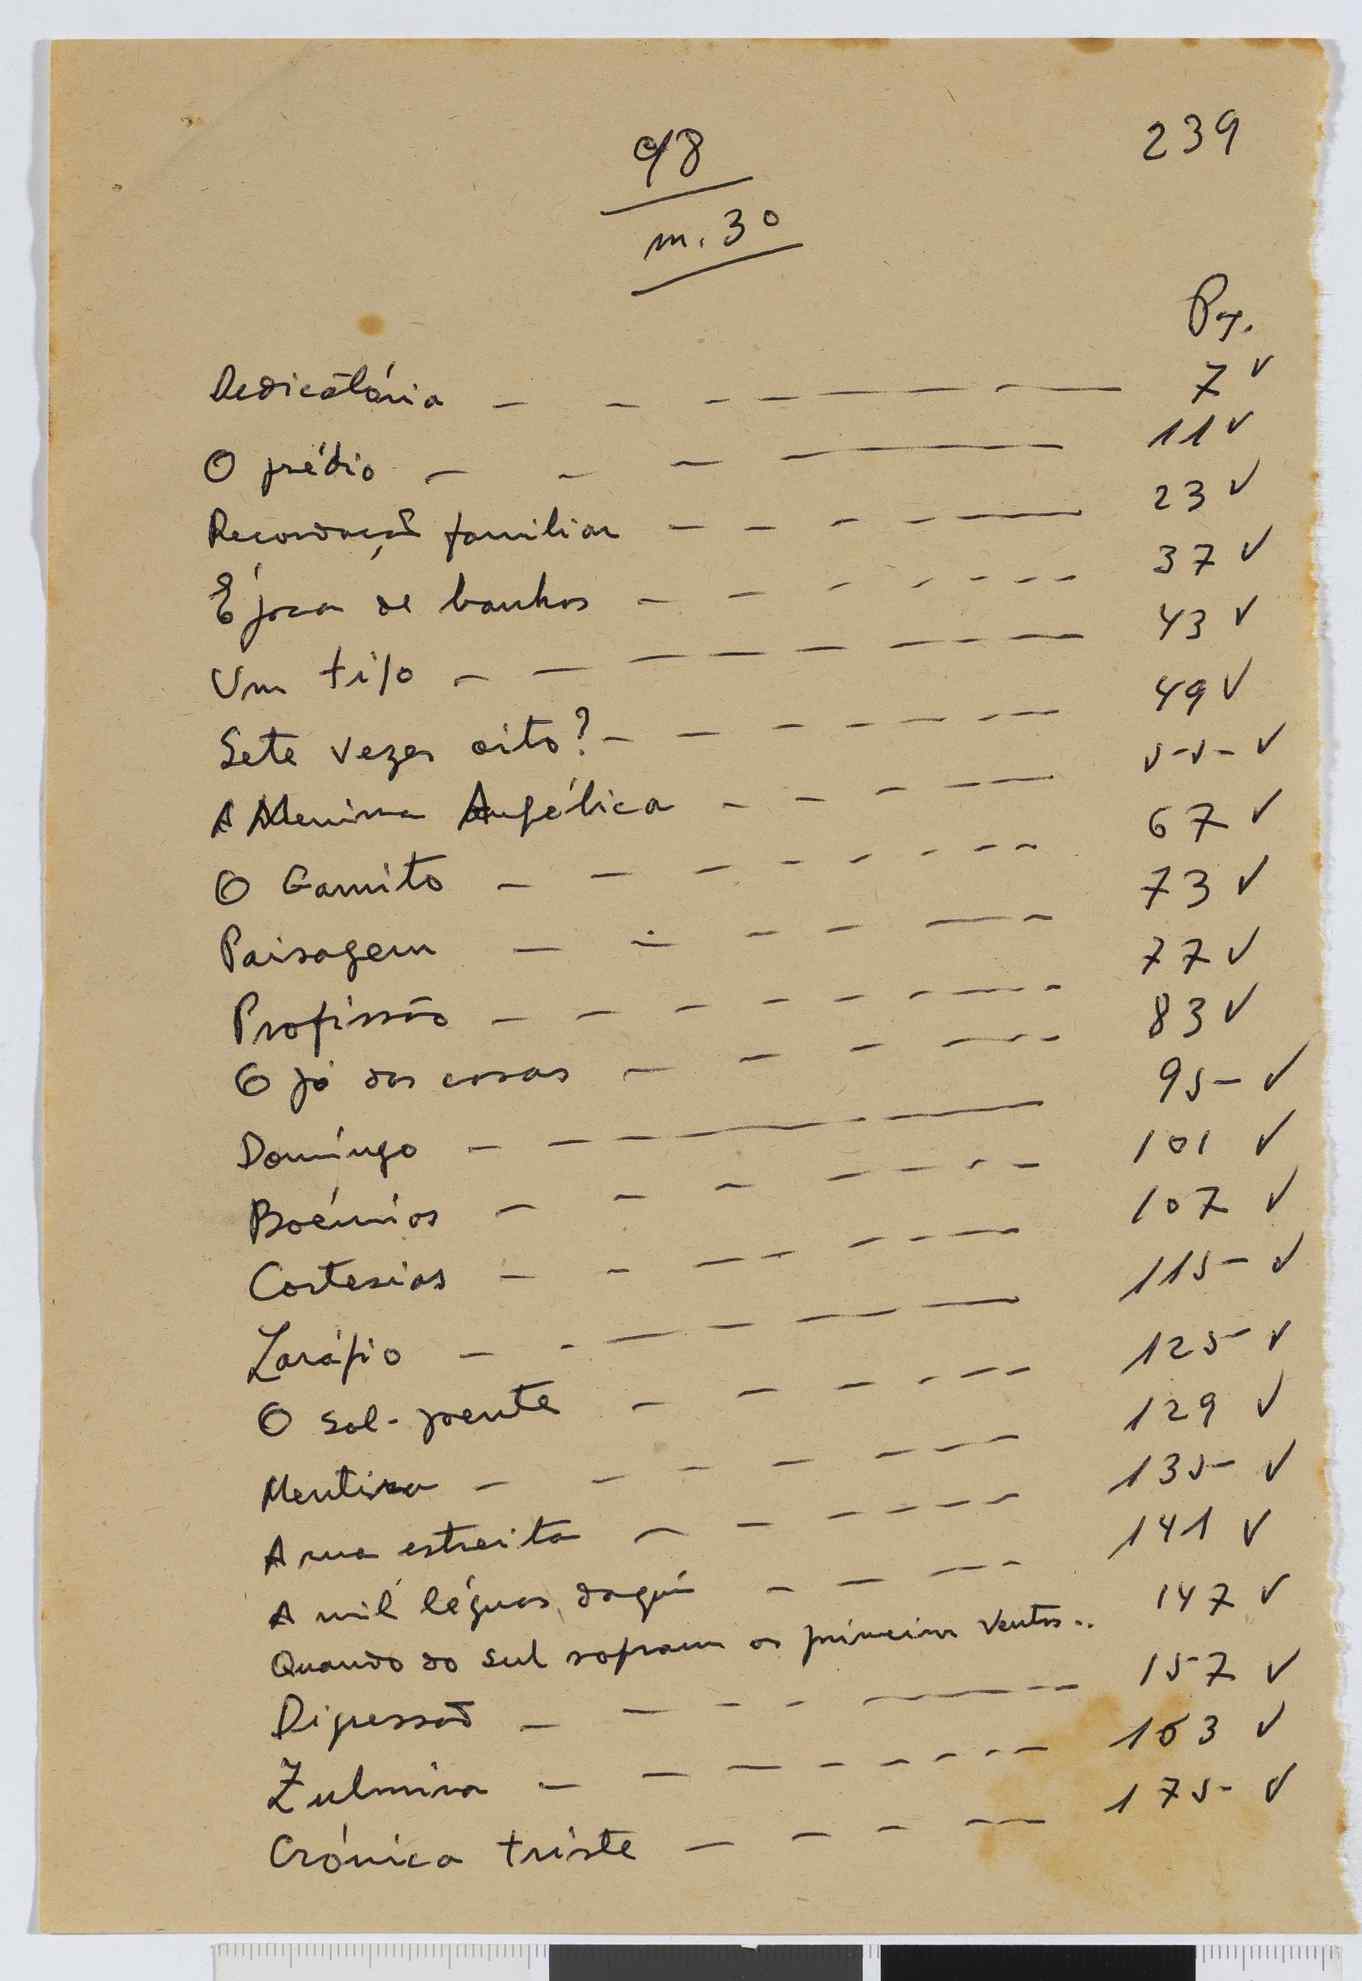 98
239
m. 30
Pg.
Dedicatória — — — — — — — 7 ✓
O prédio — — — — 11 ✓
Recordação familiar — — — — — 23 ✓
Época de banhos — — — — — — 37 ✓
Um tipo — — — — — — — 43 ✓
Sete vezes oito? — — — — — — — 49 ✓
A Menina Angélica — — — — — 55 ✓
O Gamito — — — — — — — — 67 ✓
Paisagem — — — — — — 73 ✓
Profissão — — — — — — — — 77 ✓
O pó das coisas — — — — — 83 ✓
Domingo — — — — — — 95 ✓
Boémios — — — — — — — 101 ✓
Cortesias — — — — — — 107 ✓
Zarápio — — — — — — 115 ✓
O sol-poente — — — — — — 125 ✓
Mentira — — — — — — — 129 ✓
A rua estreita — — — — — — 135 ✓
A mil léguas daqui — — — — 141 ✓
Quando do sul sopram os primeiros ventos.. 147 ✓
Digressão — — — — — — — 157 ✓
Zulmira — — — — — — — — 163 ✓
Crónica triste — — — — — 175 ✓